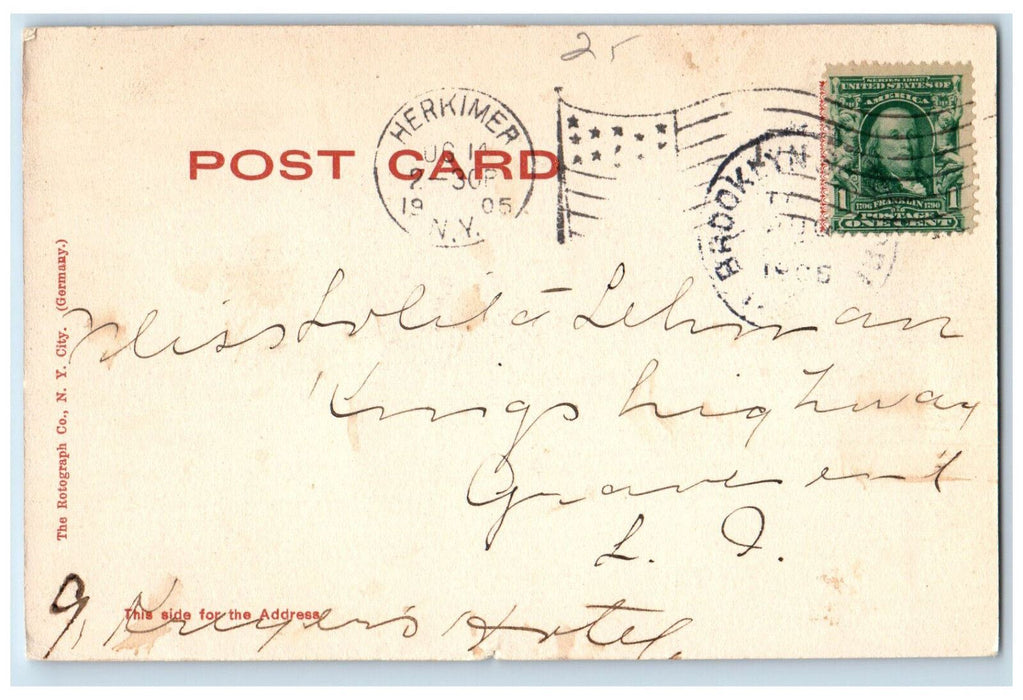 25
POST CARD
HERKIMER
AUG 14
2-30P
1905
N.Y.
BROOKLYN
1905
SERIES 1902
UNITED STATES OF
AMERICA
1706 FRANKLIN 1790
1 POSTAGE 1
ONE CENT
Miss Lolita Lehman
Kings highway
Gravesend
L. I.
This side for the Address
Hotel
The Rotograph Co., N. Y. City. (Germany.)